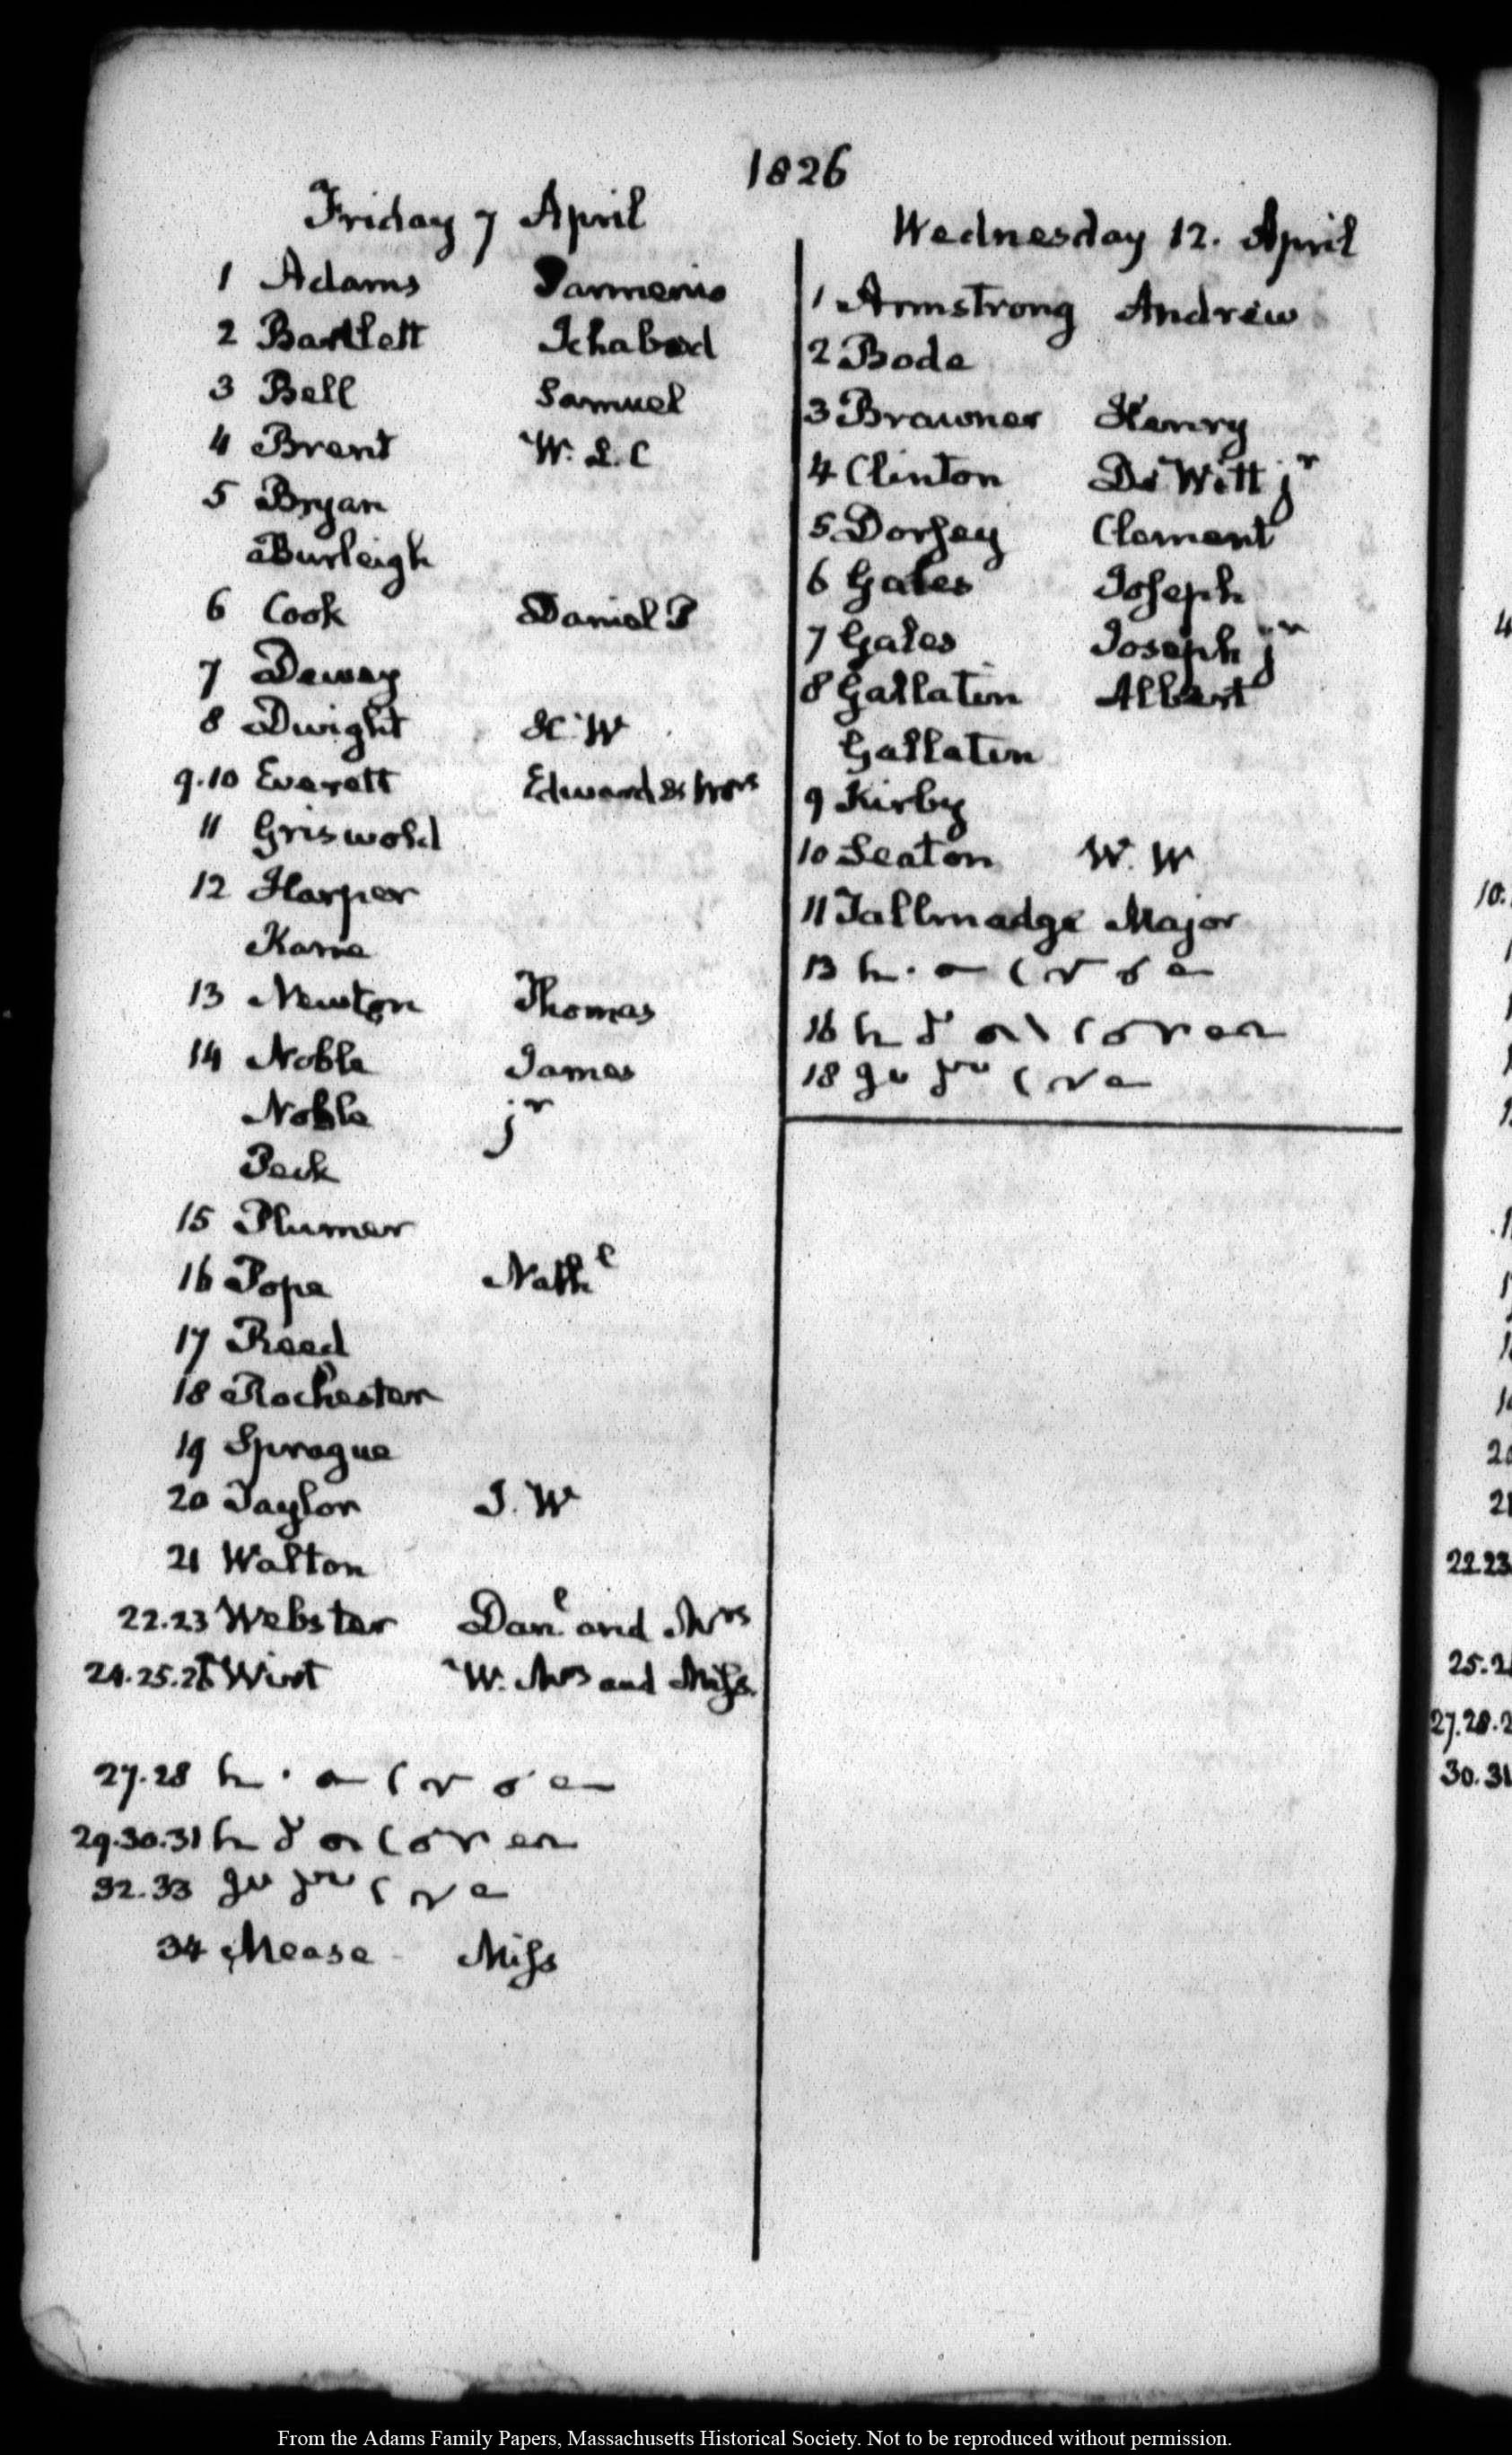 1826
Friday 7 April
1 Adams Parmenio
2 Bartlett Ichabod
3 Bell Samuel
4 Brent W. L. C
5 Bryan
Burleigh
6 Cook Daniel P
7 Dewey
8 Dwight H W
9.10 Everett Edward & Mrs
11 Griswold
12 Harper
Kane
13 Newton Thomas
14 Noble James
Noble jr
Peck
15 Plumer
16 Pope Nathl
17 Reed
18 Rochester
19 Sprague
20 Taylor J. W
21 Walton
22.23 Webster Danl and Mrs
24.25.26 Wirt W. Mrs and Miss.
27.28
29.30.31
32.33
34 Mease Miss
Wednesday 12. April
1 Armstrong Andrew
2 Bode
3 Brawner Henry
4 Clinton De Witt jr
5 Dorsey Clement
6 Gales Joseph
7 Gales Joseph jr
8 Gallatin Albert
Gallatin
9 Kirby
10 Seaton W. W
11 Tallmadge Major
13
16
18
4
10.
22.23
25.2
27.28.2
30.31
From the Adams Family Papers, Massachusetts Historical Society. Not to be reproduced without permission.